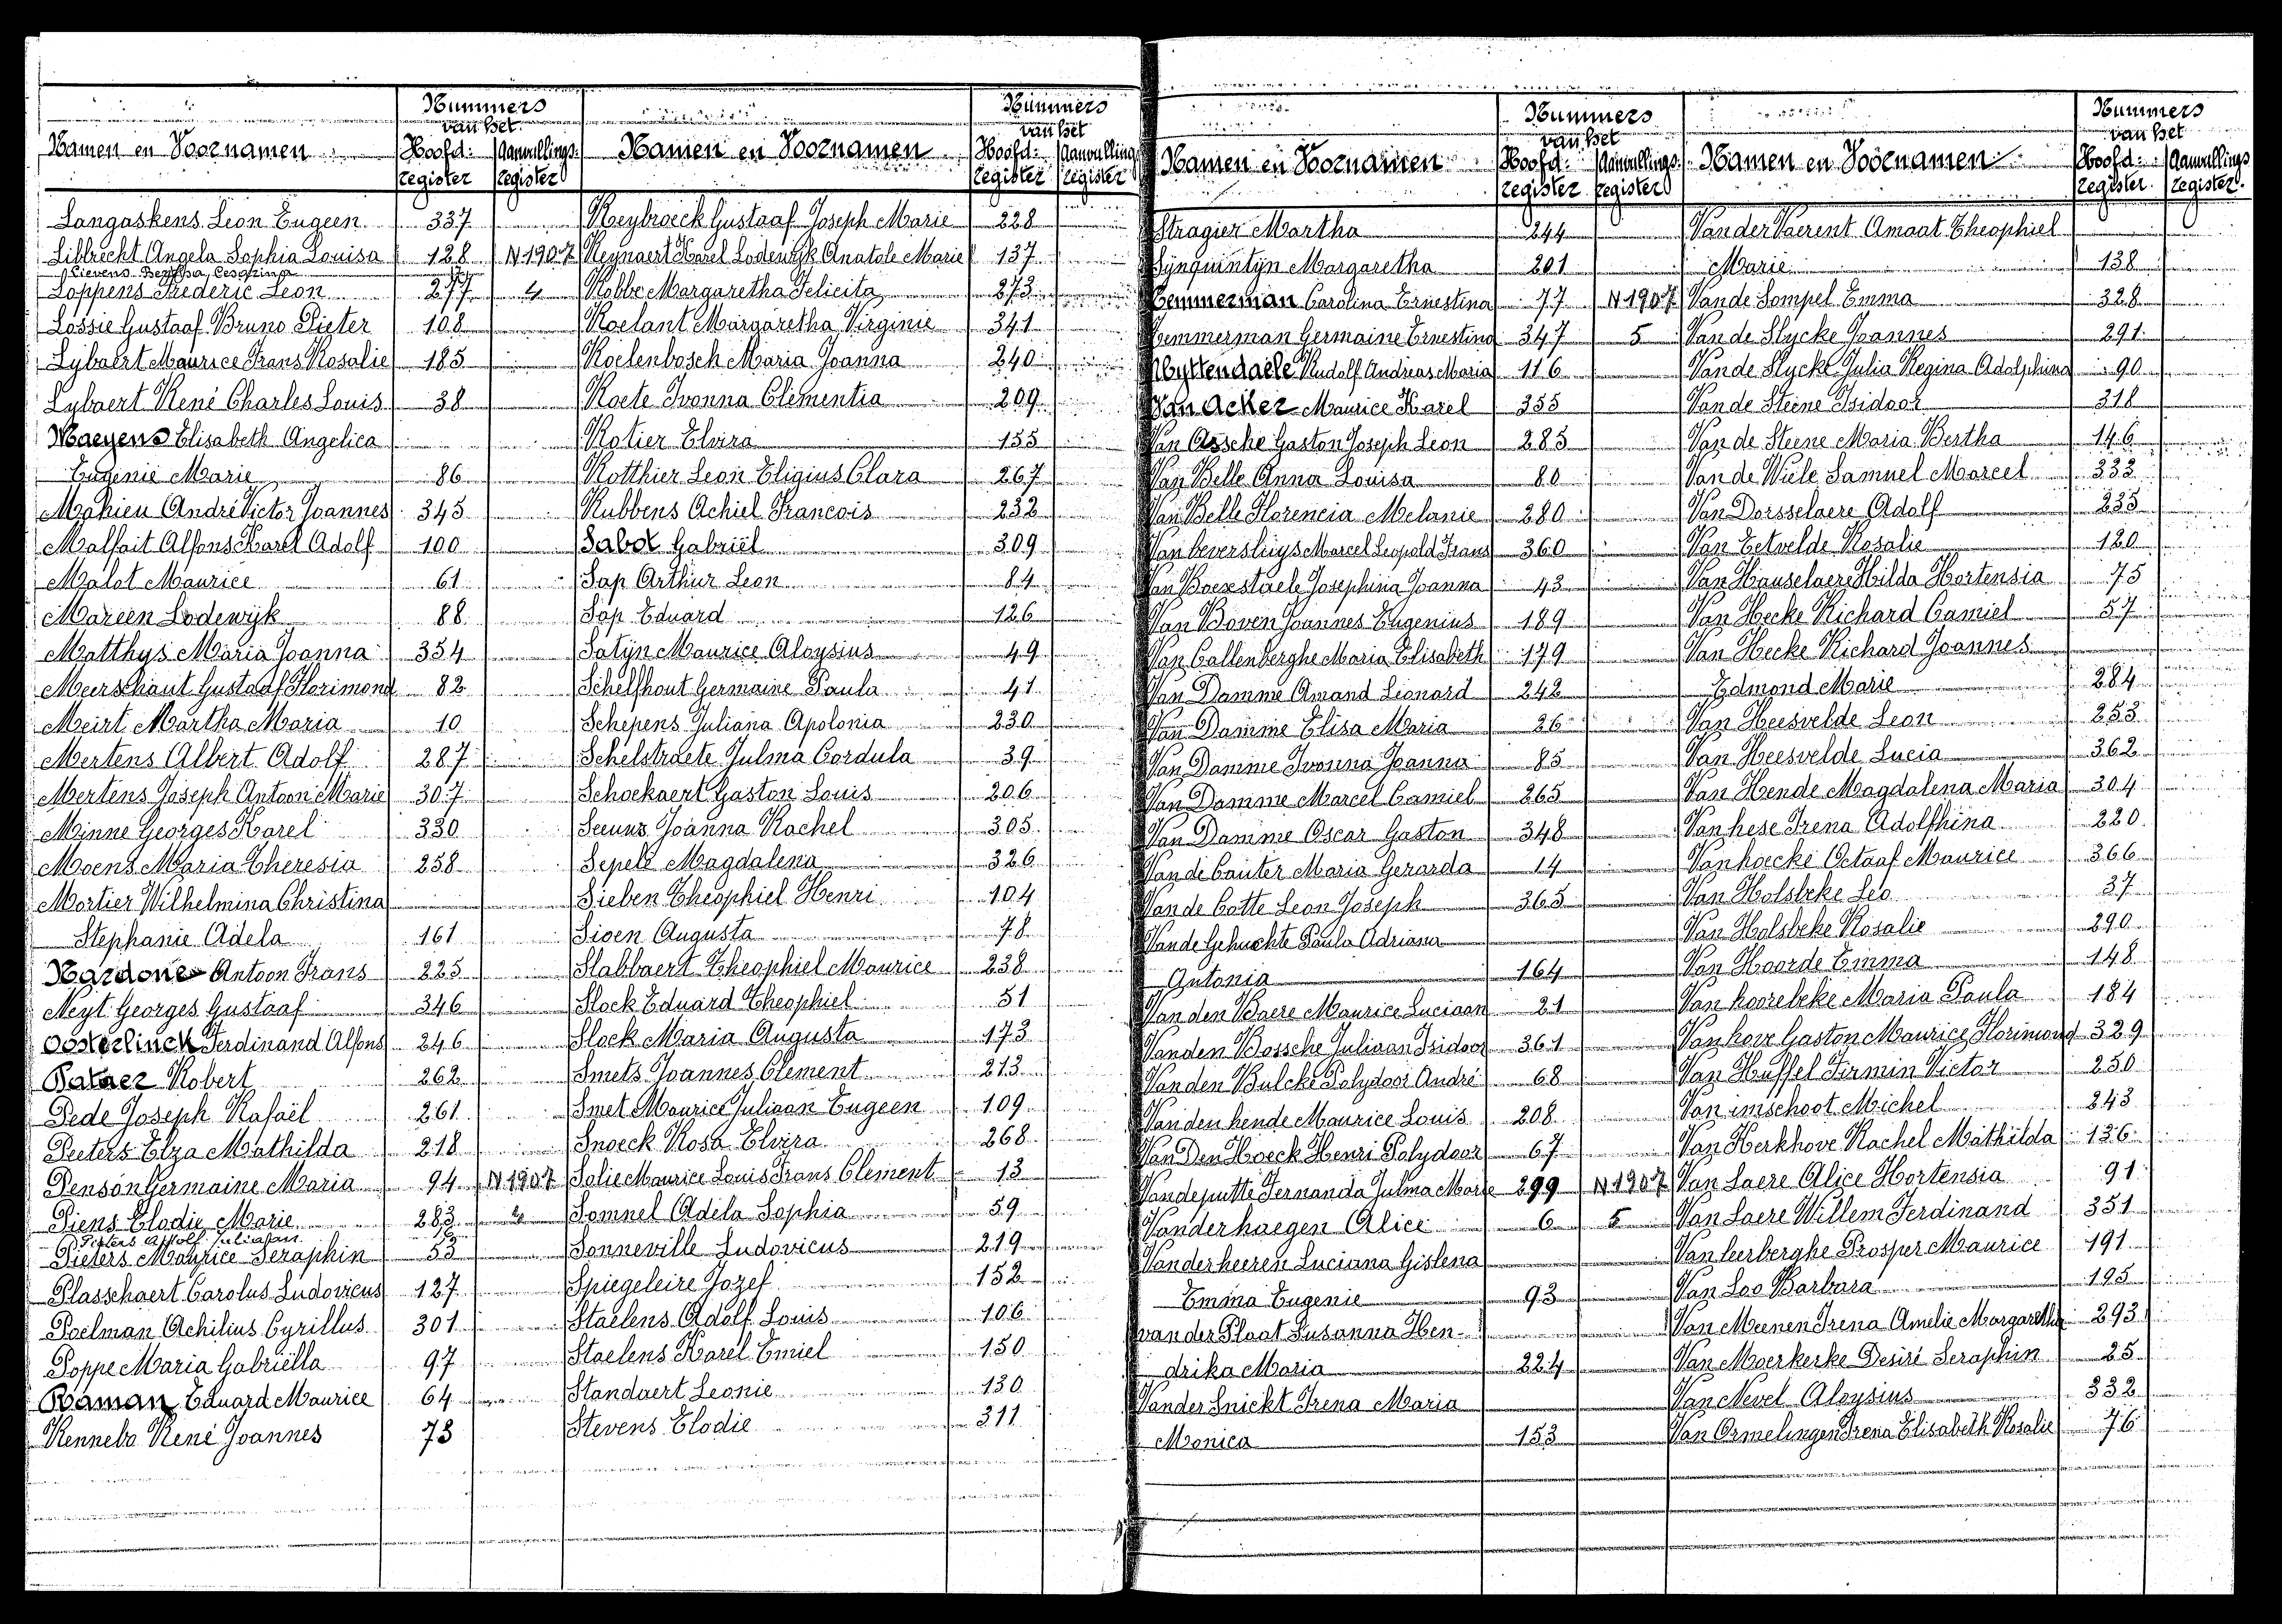 Nummers
van het
Namen en Voornamen Hoofd: Aanvullings:
register register
Langaskens Leon Eugeen 337
Librecht Angela Sophia Louisa 128 N 1907
Lievens Bertha Cesarina
Loppens Frederic Leon 277 4
Lossie Gustaaf Bruno Pieter 108
Lybaert Maurice Frans Rosalie 185
Lybaert René Charles Louis 38
Maeyens Elisabeth Angelica
Eugenie Marie 86
Mahieu André Victor Joannes 345
Malfait Alfons Karel Adolf 100
Malot Maurice 61
Mareen Lodewyk 88
Matthys Maria Joanna 354
Meerschaut Gustaaf Florimond 82
Meirt Martha Maria 10
Mertens Albert Adolf 287
Mertens Joseph Antoon Marie 307
Minne Georges Karel 330
Moens Maria Theresia 258
Mortier Wilhelmina Christina
Stephanie Adela 161
Nardone Antoon Frans 225
Neyt Georges Gustaaf 346
Oosterlinck Ferdinand Alfons 246
Pataer Robert 262
Pede Joseph Rafaël 261
Peeters Elza Mathilda 218
Penson Germaine Maria 94 N 1907
Piens Elodie Marie 283 4
Pieters Adolf Juliaan
Pieters Maurice Seraphin 53
Plasschaert Carolus Ludovicus 127
Poelman Achilius Cyrillus 301
Poppe Maria Gabriëlla 97
Raman Eduard Maurice 64
Rennebo René Joannes 73
Nummers
van het
Namen en Voornamen Hoofd: Aanvullings
register register
Reybroeck Gustaaf Joseph Marie 228
Reynaert Karel Lodewyk Anatole Marie 137
Robbe Margaretha Felicita 273
Roelant Margaretha Virginie 341
Roelenbosch Maria Joanna 240
Roete Ivonna Clementia 209
Rotier Elvira 155
Rotthier Leon Eligius Clara 267
Rubbens Achiel Francois 232
Sabot Gabriël 309
Sap Arthur Leon 84
Sap Eduard 126
Satyn Maurice Aloysius 49
Schelfhout Germaine Paula 41
Schepens Juliana Apolonia 230
Schelstraete Julma Cordula 39
Schockaert Gaston Louis 206
Seeuws Joanna Rachel 305
Sepell Magdalena 326
Sieben Theophiel Henri 104
Sioen Augusta 78
Slabbaert Theophiel Maurice 238
Slock Eduard Theophiel 51
Slock Maria Augusta 173
Smets Joannes Clement 213
Smet Maurice Juliaan Eugeen 109
Snoeck Rosa Elvira 268
Solie Maurice Louis Frans Clement 13
Somnel Adela Sophia 59
Sonneville Ludovicus 219
Spiegeleire Jozef 152
Staelens Adolf Louis 106
Staelens Karel Emiel 150
Standaert Leonie 130
Stevens Elodie 311
Nummers
van het
Namen en Voornamen Hoofd: Aanvullings:
register register
Stragier Martha 244
Synquintyn Margaretha 201
Temmerman Carolina Ernestina 77 N 1907
Temmerman Germaine Ernestina 347 5
Uyttendaele Rudolf Andreas Maria 116
Van Acker Maurice Karel 355
Van Assche Gaston Joseph Leon 285
Van Belle Anna Louisa 80
Van Belle Florencia Melanie 280
Van beversluys Marcel Leopold Frans 360
Van Boexstaele Josephina Joanna 43
Van Boven Joannes Eugenius 189
Van Callenberghe Maria Elisabeth 179
Van Damme Amand Leonard 242
Van Damme Elisa Maria 26
Van Damme Ivonna Joanna 85
Van Damme Marcel Camiel 265
Van Damme Oscar Gaston 348
Van de Cauter Maria Gerarda 14
Van de Cotte Leon Joseph 363
Van de Gehuchte Paula Adriana
Antonia 164
Van den Baere Maurice Luciaan 21
Vanden Bossche Juliaan Isidoor 361
Van den Bulcke Polydoor André 68
Van den hende Maurice Louis 208
Van Den Hoeck Henri Polydoor 67
Vandeputte Fernanda Julma Marie 299 N 1907
Vanderhaegen Alice 6 5
Vanderheeren Luciana Gislena
Emma Eugenie 93
van der Plaat Susanna Hen-
drika Maria 224
Vander Snickt Irena Maria
Monica 153
Nummers
van het
Namen en Voornamen Hoofd: Aanvullings
register register
Van der Vaerent Amaat Theophiel
Marie 138
Van de Sompel Emma 328
Van de Slycke Joannes 291
Van de Slycke Julia Regina Adolphina 90
Van de Steene Isidoor 318
Van de Steene Maria Bertha 146
Van de Wiele Samuel Marcel 333
Van Dorsselaere Adolf 235
Van Eetvelde Rosalie 120
Van Hauselaere Hilda Hortensia 75
Van Hecke Richard Camiel 57
Van Hecke Richard Joannes
Edmond Marie 284
Van Heesvelde Leon 253
Van Heesvelde Lucia 362
Van Hende Magdalena Maria 304
Van hese Irena Adolfhina 220
Vanhoecke Octaaf Maurice 366
Van Holsbeke Leo 37
Van Holsbeke Rosalie 290
Van Hoorde Emma 148
Van hoorebeke Maria Paula 184
Van hove Gaston Maurice Florimond 329
Van Huffel Firmin Victor 250
Van imschoot Michel 243
Van Kerkhove Rachel Mathilda 136
Van Laere Alice Hortensia 91
Van Laere Willem Ferdinand 351
Van leerberghe Prosper Maurice 191
Van Loo Barbara 195
Van Meenen Irena Amelie Margaretha 293
Van Moerkerke Desiré Seraphin 25
Van Nevel Aloysius 332
Van Ormelingen Irena Elisabeth Rosalie 76